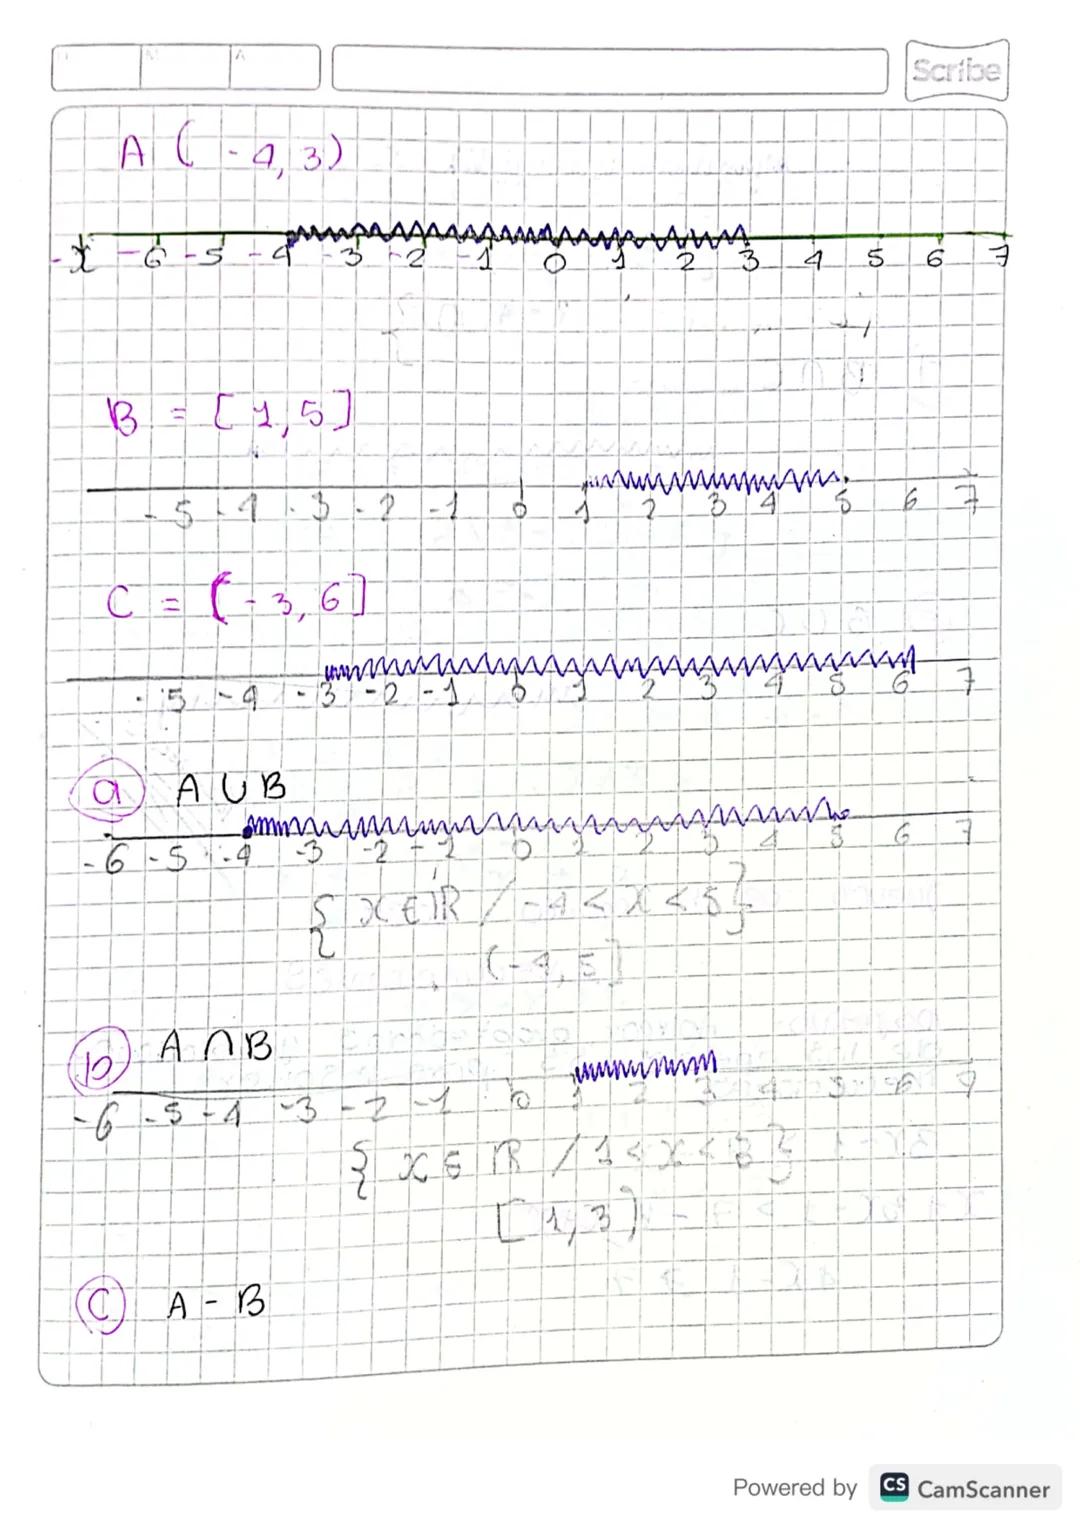 Scribe
A ( -4, 3)
-x -6 -5 -4 -3 -2 -1 0 1 2 3 4 5 6 7
B = [ 1, 5 ]
-5 -4 -3 -2 -1 0 1 2 3 4 5 6 7
C = ( -3, 6 ]
-5 -4 -3 -2 -1 0 1 2 3 4 5 6 7
a A ∪ B
-6 -5 -4 -3 -2 -1 0 1 2 3 4 5 6 7
{ x ∈ IR / -4 < x < 5 }
(-4, 5]
b A ∩ B
-6 -5 -4 -3 -2 -1 0 1 2 3 4 5 6 7
{ x ∈ IR / 1 < x < 3 }
[ 1, 3 )
C A - B
Powered by CS CamScanner